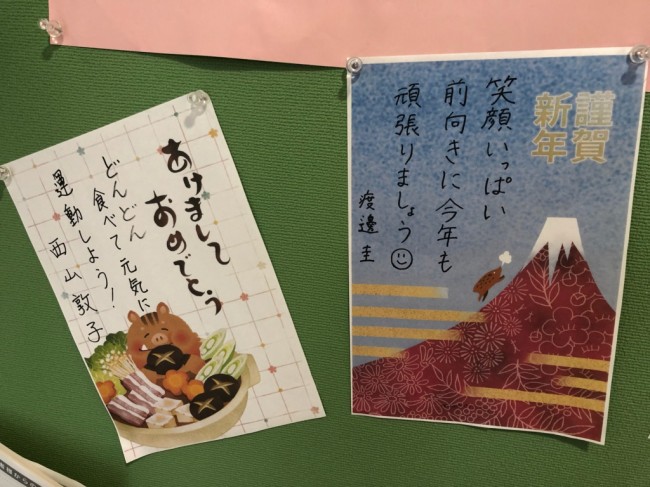 あけまして
おめでとう
どんどん
食べて元気に
運動しよう！
西山敦子
謹賀
新年
笑顔いっぱい
前向きに今年も
頑張りましょう
渡邊圭